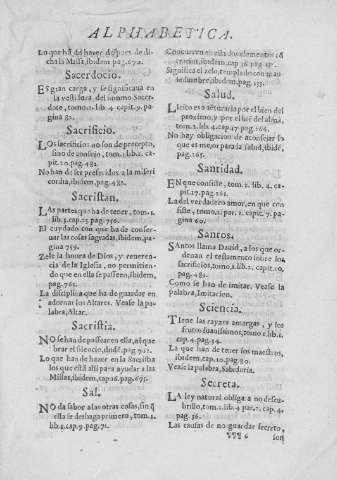 ALPHABETICA.
Lo que hā de haver despues de di-
cha la Missa, ibidem pag. 672.
Sacerdocio.
ES gran carga, y se significava en
la vestidura del summo Sacer-
dote, tomo. 1. lib. 4. capit. 9. pa-
gina 82.
Sacrificio.
LOs sacrificios no son de precepto,
sino de consejo, tom. 1. lib. 2. ca-
pit. 20. pag. 482.
No han de ser preferidos a la miseri
cordia, ibidem, pag. 482.
Sacristan.
LAs partes que ha de tener, tom. 1.
lib. 5. cap. 25. pag. 761.
El cuydado con que ha de conser-
var las cosas sagradas, ibidem, pa-
gina 759.
Zele la honra de Dios, y reveren-
cia de la Iglesia, no permitien-
do que en ella se passeen, ibidem,
pag. 761.
La disciplina que ha de guardar en
adornar los Altares. Vease la pa-
labra, Altar.
Sacristia.
NO se han de passear en ella, ni que
brar el silencio, dicho. pag. 702.
Lo que han de hazer en la Sacristia
los que està alli para ayudar a las
Missas, ibidem, cap. 16. pag. 675.
Sal.
NO da sabor a las otras cosas, sin q̄
ella se deshaga primero, tom. 1.
lib. 4. cap. 9. pag. 71.
cracion, ibidem, cap. 16. pag.
Significa el zelo, templado con mās
Salud.
Licito es aventurarla por el bien del
proximo, y por el bien del alma,
tom. 1. lib. 4. cap. 17. pag. 264.
No hay obligacion de aconsejar la
que es mejor para la salud, ibidē,
pag. 265.
Santidad.
EN que consiste, tom. 1. lib. 4. ca-
pit. 17. pag. 261.
La del verdadero amor, en que con-
siste, tomo. 1. par. 2. capit. 7. pa-
gina 60.
Santos.
SAntos llama David, a los que or-
denan el testamento sobre los
sacrificios, tomo. 1. lib. 2. capit. 20.
pag. 481.
Como se han de imitar. Vease la
palabra, Imitacion.
Sciencia.
TIene las rayzes amargas, y los
frutos suavissimos, tomo. 1. lib. 1.
cap. 4. pag. 34.
La que han de tener los maestros,
ibidem. cap. 10. pag. 80.
Vease la palabra, Sabiduria.
Secreto.
LA ley natural obliga a no descu-
brillo, tom. 1. lib. 4. par. 2. cap. 4.
pag. 36.
Las causas de no guardar secreto,
¶¶¶ 6 son